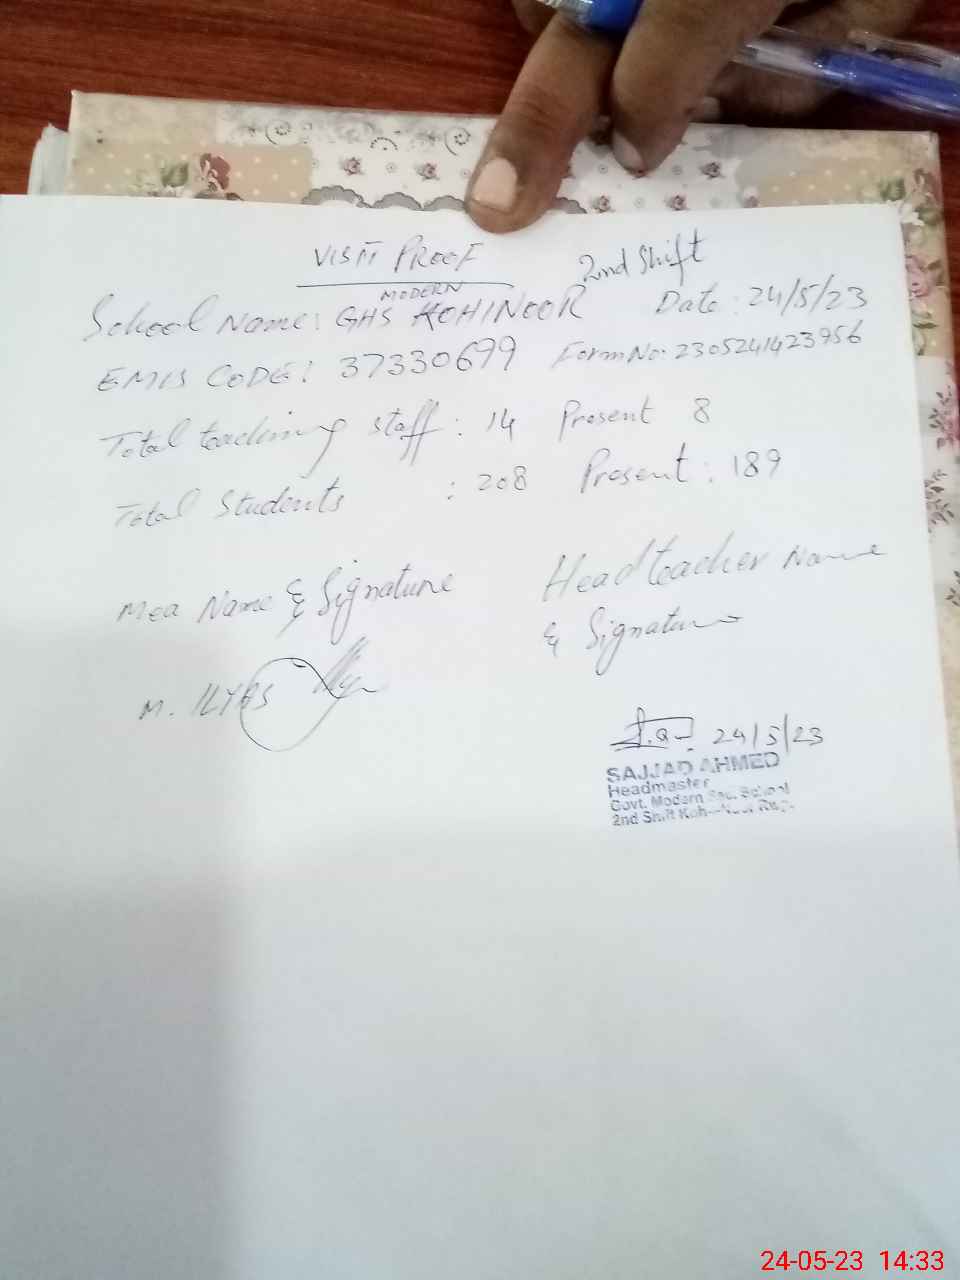 VISIT PROOF
2nd Shift
MODERN
School Name: GHS KOHINOOR Date: 24/5/23
EMIS CODE: 37330699 Form No: 2305241423956
Total teaching staff: 14 Present 8
Total Students : 208 Present: 189
Mea Name & Signature
Headteacher Name
& Signature
M. ILYAS
24/5/23
SAJJAD AHMED
Headmaster
Govt. Modern Sec. School
2nd Shift
24-05-23 14:33